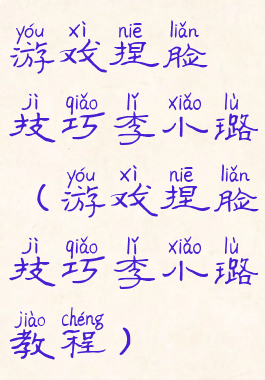 yóu xì niē liǎn
游戏捏脸
jì qiǎo lǐ xiǎo lù
技巧李小璐
yóu xì niē liǎn
(游戏捏脸
jì qiǎo lǐ xiǎo lù
技巧李小璐
jiào chéng
教程)